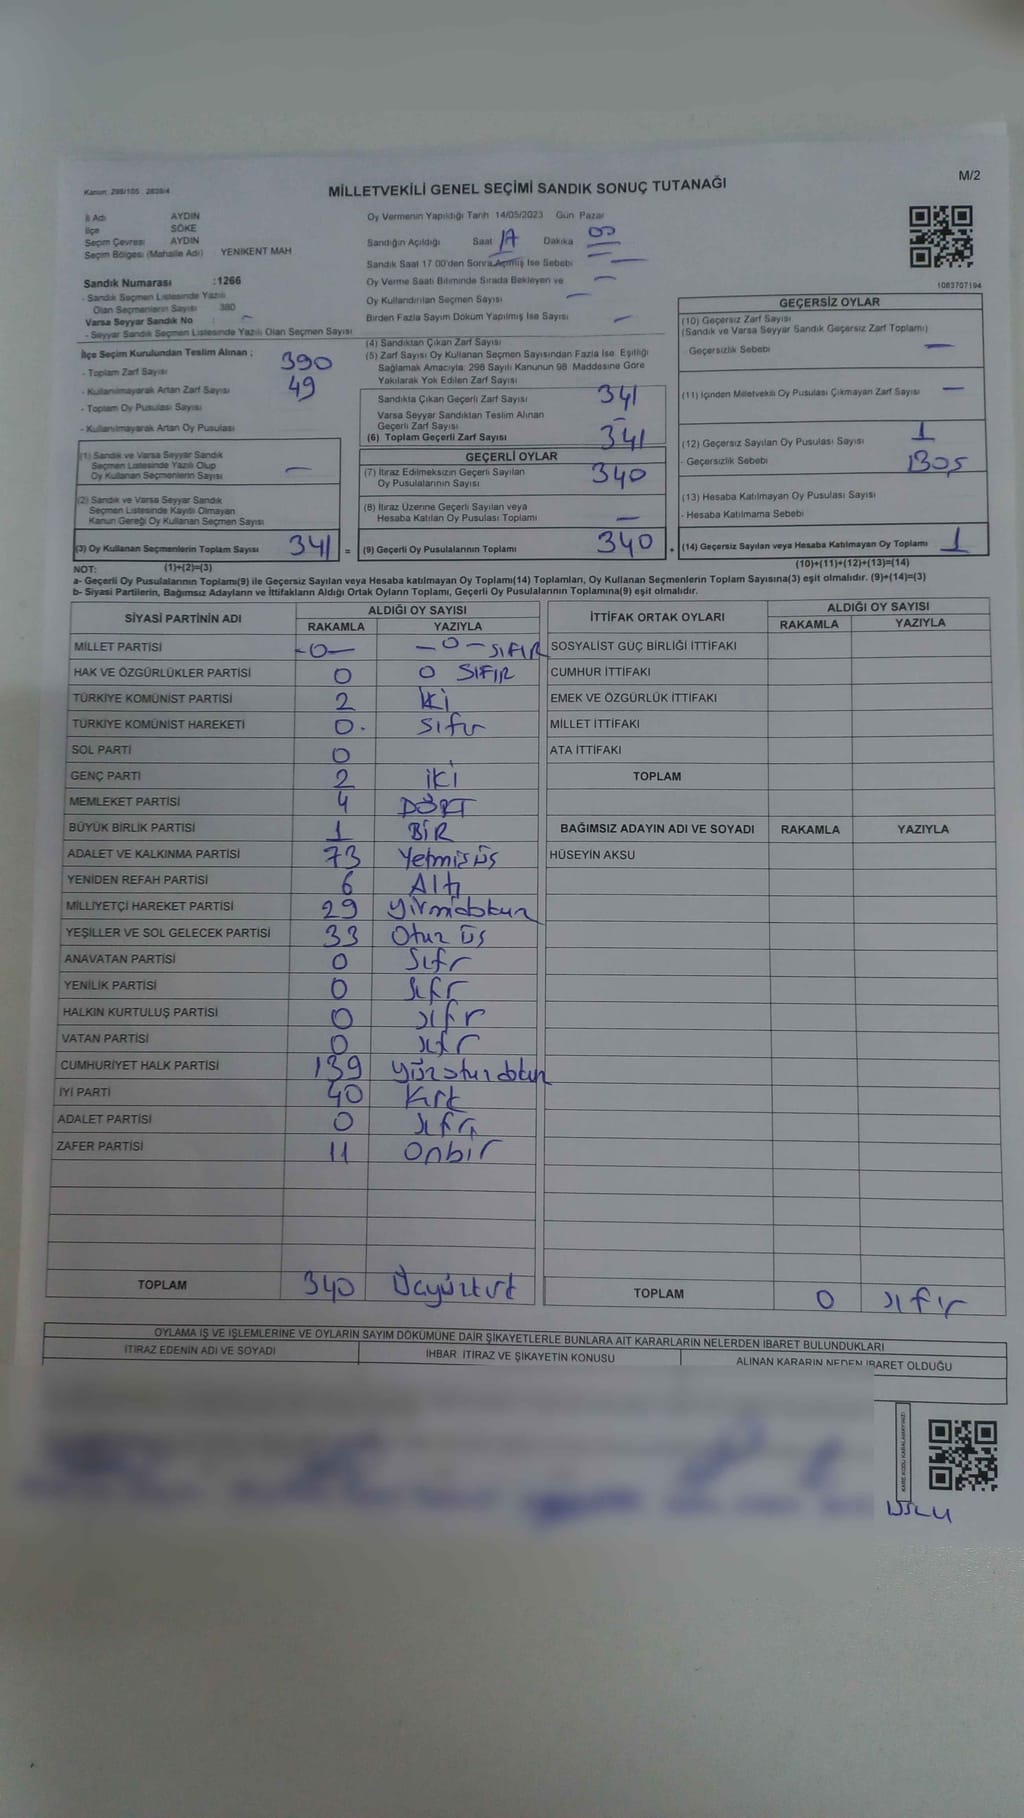 Kanun: 298/105 2839/4
MİLLETVEKİLİ GENEL SEÇİMİ SANDIK SONUÇ TUTANAĞI
M/2
İl Adı AYDIN
İlçe SÖKE
Seçim Çevresi AYDIN
Seçim Bölgesi (Mahalle Adı) YENİKENT MAH
Sandık Numarası :1266
- Sandık Seçmen Listesinde Yazılı
Olan Seçmenlerin Sayısı 380
Varsa Seyyar Sandık No : -
- Seyyar Sandık Seçmen Listesinde Yazılı Olan Seçmen Sayısı
Oy Vermenin Yapıldığı Tarih 14/05/2023 Gün Pazar
Sandığın Açıldığı Saat 17 Dakika 00
Sandık Saat 17 00'den Sonra Açılmış İse Sebebi —
Oy Verme Saati Bitiminde Sırada Bekleyen ve —
Oy Kullandırılan Seçmen Sayısı —
Birden Fazla Sayım Döküm Yapılmış İse Sayısı —
1083707194
İlçe Seçim Kurulundan Teslim Alınan ;
- Toplam Zarf Sayısı 390
- Kullanılmayarak Artan Zarf Sayısı 49
- Toplam Oy Pusulası Sayısı
- Kullanılmayarak Artan Oy Pusulası
(1) Sandık ve Varsa Seyyar Sandık
Seçmen Listesinde Yazılı Olup
Oy Kullanan Seçmenlerin Sayısı —
(2) Sandık ve Varsa Seyyar Sandık
Seçmen Listesinde Kayıtlı Olmayan
Kanun Gereği Oy Kullanan Seçmen Sayısı
(3) Oy Kullanan Seçmenlerin Toplam Sayısı 341 =
(1)+(2)=(3)
(4) Sandıktan Çıkan Zarf Sayısı
(5) Zarf Sayısı Oy Kullanan Seçmen Sayısından Fazla İse. Eşitliği
Sağlamak Amacıyla; 298 Sayılı Kanunun 98. Maddesine Göre
Yakılarak Yok Edilen Zarf Sayısı
Sandıkta Çıkan Geçerli Zarf Sayısı 341
Varsa Seyyar Sandıktan Teslim Alınan
Geçerli Zarf Sayısı —
(6) Toplam Geçerli Zarf Sayısı 341
GEÇERLİ OYLAR
(7) İtiraz Edilmeksizin Geçerli Sayılan
Oy Pusulalarının Sayısı 340
(8) İtiraz Üzerine Geçerli Sayılan veya
Hesaba Katılan Oy Pusulası Toplamı —
(9) Geçerli Oy Pusulalarının Toplamı 340 +
GEÇERSİZ OYLAR
(10) Geçersiz Zarf Sayısı
(Sandık ve Varsa Seyyar Sandık Geçersiz Zarf Toplamı)
Geçersizlik Sebebi —
(11) İçinden Milletvekili Oy Pusulası Çıkmayan Zarf Sayısı —
(12) Geçersiz Sayılan Oy Pusulası Sayısı 1
- Geçersizlik Sebebi BOŞ
(13) Hesaba Katılmayan Oy Pusulası Sayısı
- Hesaba Katılmama Sebebi
(14) Geçersiz Sayılan veya Hesaba Katılmayan Oy Toplamı 1
(10)+(11)+(12)+(13)=(14)
NOT:
a- Geçerli Oy Pusulalarının Toplamı(9) ile Geçersiz Sayılan veya Hesaba katılmayan Oy Toplamı(14) Toplamları, Oy Kullanan Seçmenlerin Toplam Sayısına(3) eşit olmalıdır. (9)+(14)=(3)
b- Siyasi Partilerin, Bağımsız Adayların ve İttifakların Aldığı Ortak Oyların Toplamı, Geçerli Oy Pusulalarının Toplamına(9) eşit olmalıdır.
SİYASİ PARTİNİN ADI ALDIĞI OY SAYISI
RAKAMLA YAZIYLA
MİLLET PARTİSİ -0- -0- SIFIR
HAK VE ÖZGÜRLÜKLER PARTİSİ 0 0 SIFIR
TÜRKİYE KOMÜNİST PARTİSİ 2 İki
TÜRKİYE KOMÜNİST HAREKETİ 0. sıfır
SOL PARTİ 0
GENÇ PARTİ 2 iki
MEMLEKET PARTİSİ 4 DÖRT
BÜYÜK BİRLİK PARTİSİ 1 BİR
ADALET VE KALKINMA PARTİSİ 73 Yetmişüş
YENİDEN REFAH PARTİSİ 6 Altı
MİLLİYETÇİ HAREKET PARTİSİ 29 yirmidokuz
YEŞİLLER VE SOL GELECEK PARTİSİ 33 Otuz üş
ANAVATAN PARTİSİ 0 Sıfır
YENİLİK PARTİSİ 0 sıfır
HALKIN KURTULUŞ PARTİSİ 0 sıfır
VATAN PARTİSİ 0 sıfır
CUMHURİYET HALK PARTİSİ 139 yüzotuzdokuz
İYİ PARTİ 40 Kırk
ADALET PARTİSİ 0 sıfır
ZAFER PARTİSİ 11 Onbir
TOPLAM 340 Üçyüzkırk
İTTİFAK ORTAK OYLARI ALDIĞI OY SAYISI
RAKAMLA YAZIYLA
SOSYALİST GÜÇ BİRLİĞİ İTTİFAKI
CUMHUR İTTİFAKI
EMEK VE ÖZGÜRLÜK İTTİFAKI
MİLLET İTTİFAKI
ATA İTTİFAKI
TOPLAM
BAĞIMSIZ ADAYIN ADI VE SOYADI RAKAMLA YAZIYLA
HÜSEYİN AKSU
TOPLAM 0 sıfır
OYLAMA İŞ VE İŞLEMLERİNE VE OYLARIN SAYIM DÖKÜMÜNE DAİR ŞİKAYETLERLE BUNLARA AİT KARARLARIN NELERDEN İBARET BULUNDUKLARI
İTİRAZ EDENİN ADI VE SOYADI İHBAR. İTİRAZ VE ŞİKAYETİN KONUSU ALINAN KARARIN NEDEN İBARET OLDUĞU
KARE KODU KARALAMAYINIZ!